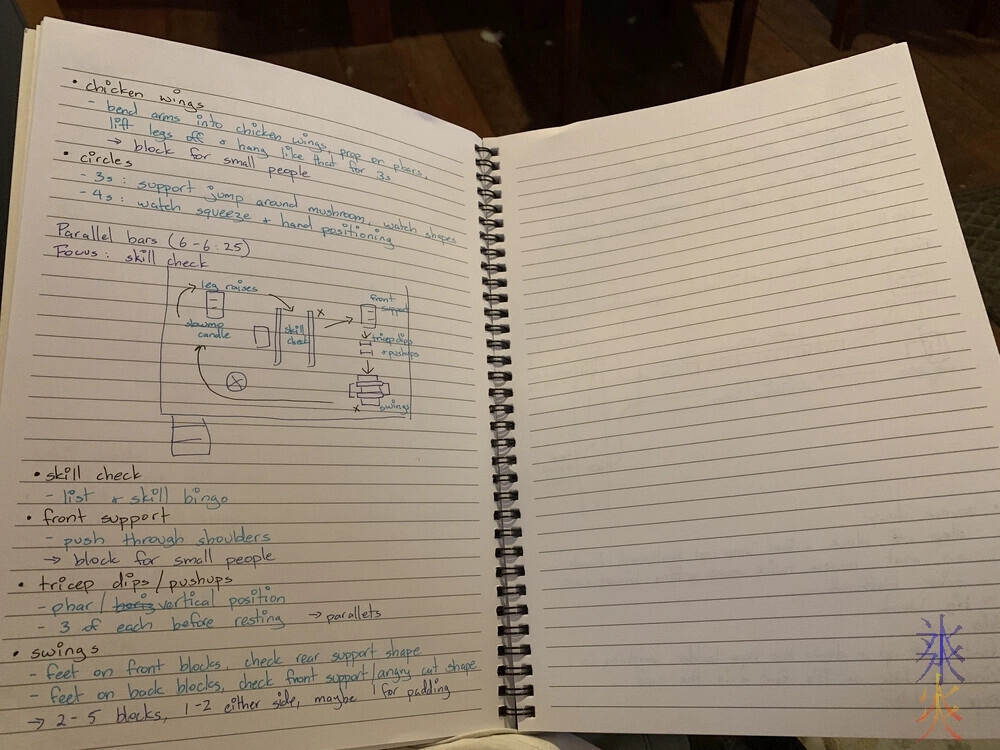 • chicken wings
- bend arms into chicken wings, prop on pbars,
lift legs off & hang like that for 3s
→ block for small people
• circles
- 3s: support jump around mushroom, watch shapes
- 4s: watch squeeze & hand positioning
Parallel bars (6-6:25)
Focus: skill check
leg raises
candle
skill check
x
front support
tricep dips
& pushups
swings
x
• skill check
- list & skill bingo
• front support
- push through shoulders
→ block for small people
• tricep dips/pushups
- pbar/ vertical position
- 3 of each before resting → parallets
• swings
- feet on front blocks, check rear support shape
- feet on back blocks, check front support/angry cat shape
→ 2-5 blocks, 1-2 either side, maybe 1 for padding
氷
火